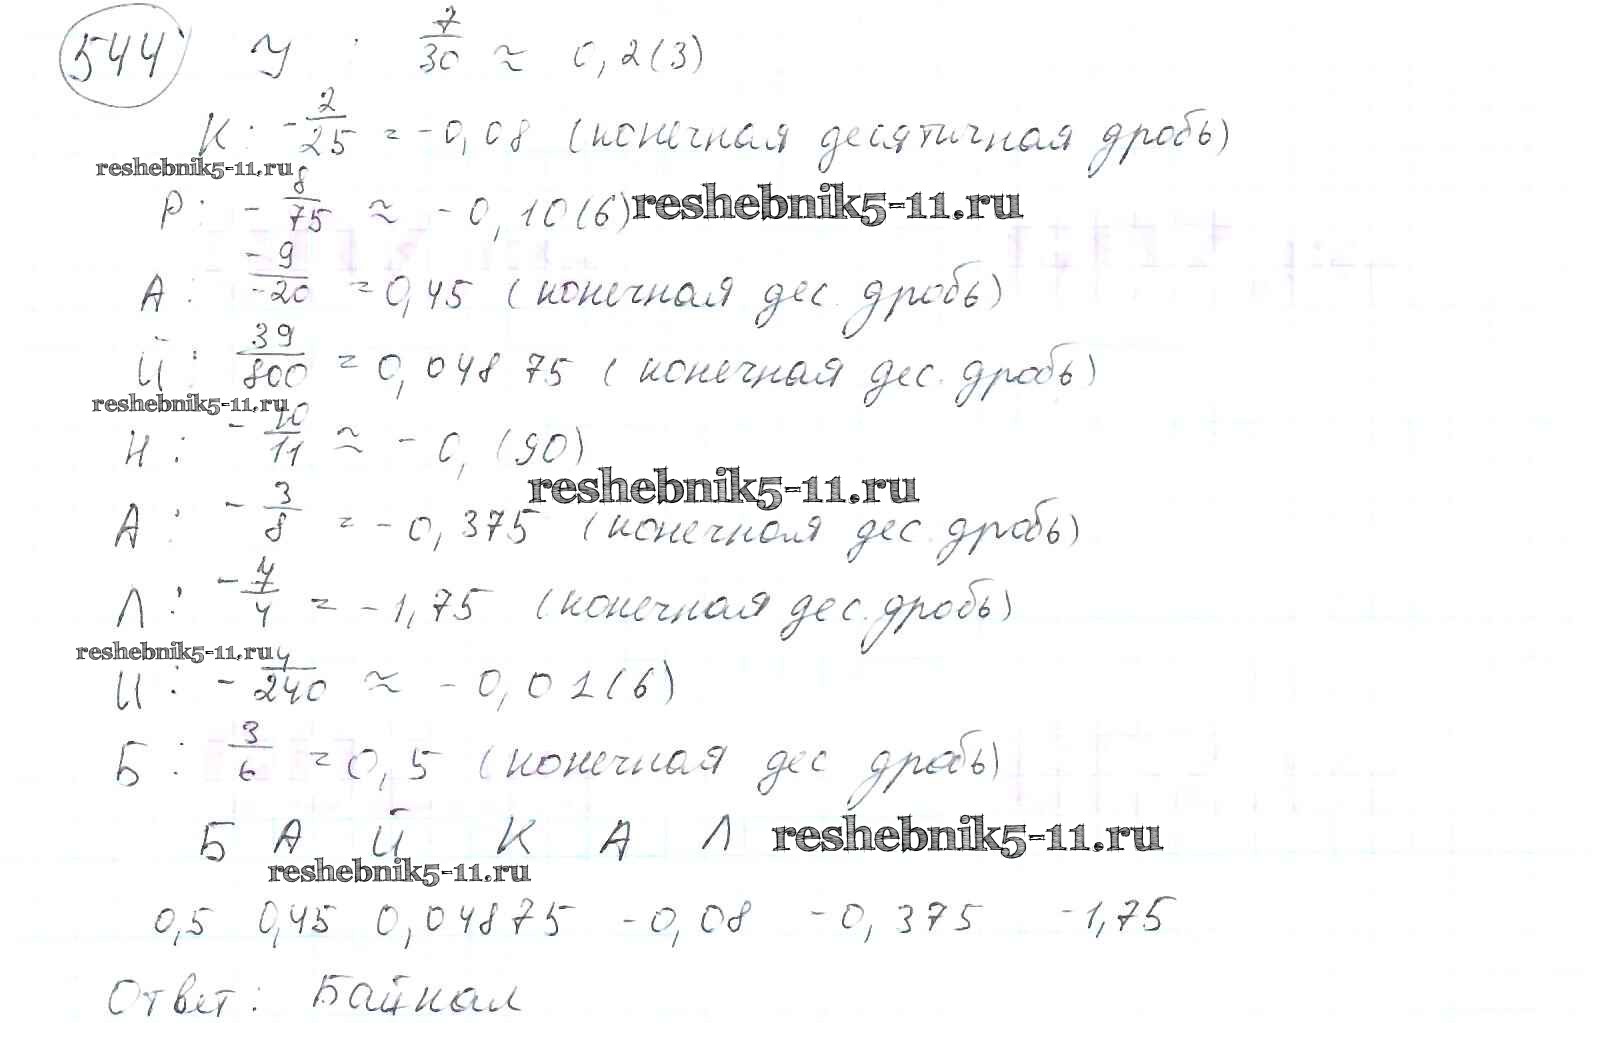 544 У : 7/30 ≈ 0,2(3)
К: -2/25 = -0,08 (конечная десятичная дробь)
reshebnik5-11.ru
Р: -8/75 ≈ -0,10(6) reshebnik5-11.ru
А: -9/-20 = 0,45 (конечная дес. дробь)
Й: 39/800 = 0,04875 (конечная дес. дробь)
reshebnik5-11.ru
Н: -10/11 ≈ -0,(90)
reshebnik5-11.ru
А: -3/8 = -0,375 (конечная дес. дробь)
Л: -7/4 = -1,75 (конечная дес. дробь)
reshebnik5-11.ru
И: -4/240 ≈ -0,01(6)
Б: 3/6 = 0,5 (конечная дес дробь)
Б А Й К А Л reshebnik5-11.ru
reshebnik5-11.ru
0,5 0,45 0,04875 -0,08 -0,375 -1,75
Ответ: Байкал